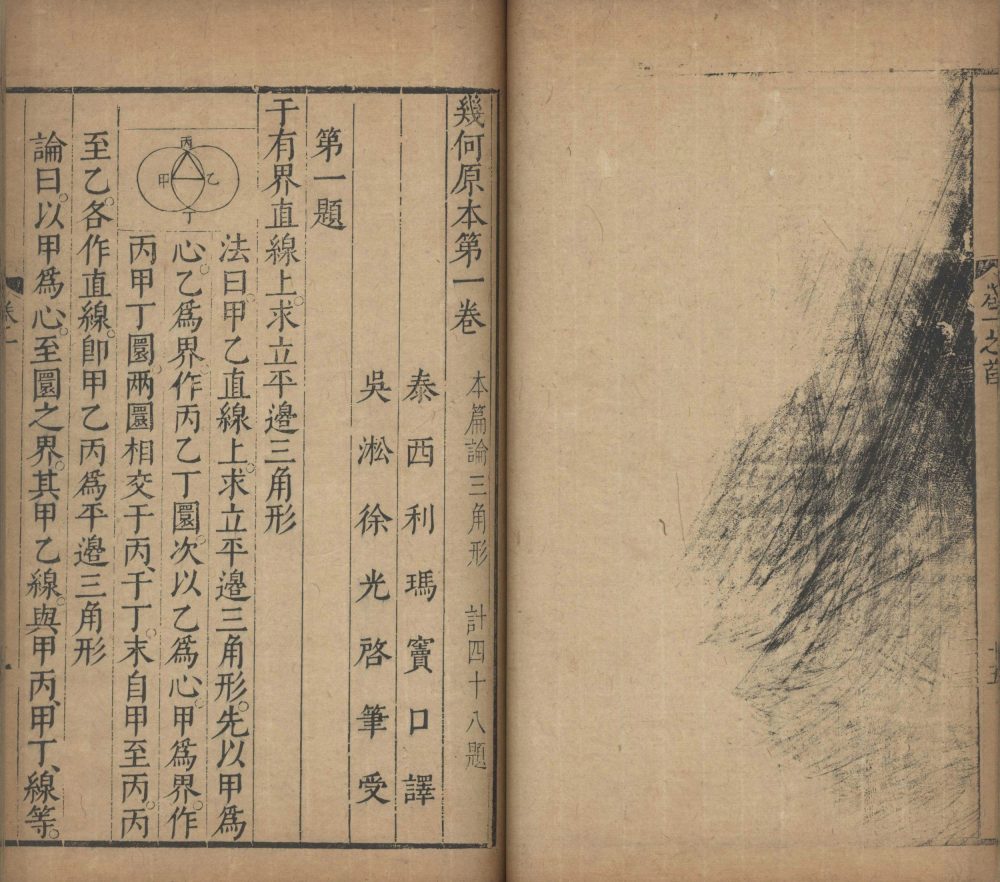 卷一之首
幾何原本第一卷 本篇論三角形 計四十八題
泰西利瑪竇口譯
吳淞徐光啓筆受
第一題
于有界直線上。求立平邊三角形
法曰。甲乙直線上。求立平邊三角形。先以甲爲
心。乙爲界。作丙乙丁圜。次以乙爲心。甲爲界。作
丙甲丁圜。兩圜相交于丙、于丁。末自甲至丙。丙
丙
甲 乙
丁
至乙。各作直線。卽甲乙丙爲平邊三角形
論曰。以甲爲心。至圜之界。其甲乙線。與甲丙、甲丁、線等。
卷一